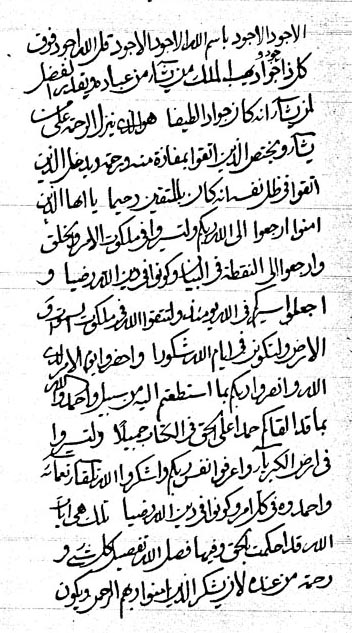 الاجود الاجود باسم الله الاجود الاجود قل الله اجود فوق
كل ذا جواد يهب الملك من يشاء من عباده ويقدر الفضل
لمن يشاء انه كان جوادا لطيفا هو الذي ينزل الرحمة على من
يشاء ويختص الذين اتقوا بمفازة منه ورحمة ويدخل الذين
اتقوا في ظل نفسه انه كان بالمتقين رحيما يا ايها الذين
امنوا ارجعوا الى الله ربكم ولتسروا في ملكوت الامر والخلق
وارجعوا الى النقطة في البيان وكونوا في دين الله رضيا و
اجعلوا سيركم في الله يومئذ ولتتقوا الله في ملكوت السموات و
الارض ولتكونن في ايام الله شكورا واحضروا يوم الامر لدى
الله وانصروا ربكم بما استطعتم اليه من سبيل واحمدوا الله
بما قد القاكم حمدا على الحق في الكتاب جميلا ولتسروا
في ارض الكبرياء واعرفوا نفس ربكم واشكروا الله تلقاء نعمائه
واحمدوه في كل امر وكونوا في دين الله رضيا تلك هي ايات
الله قد احكمت بالحق وفيها فصل الله تفصيل كل شيء و
رحمة من عنده لان يشكر الذين امنوا بربهم الرحمن ويكون